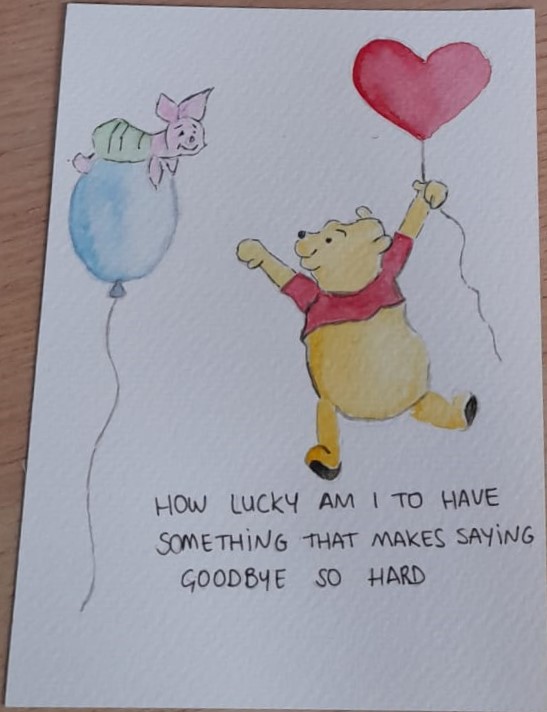 HOW LUCKY AM I TO HAVE
SOMETHING THAT MAKES SAYING
GOODBYE SO HARD